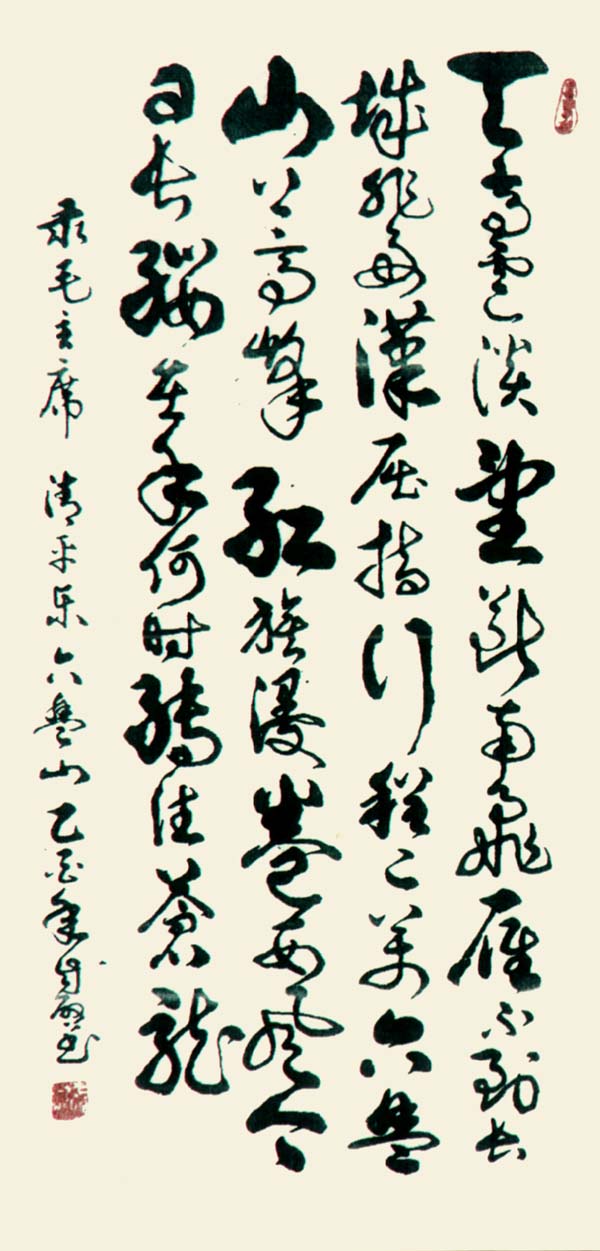 天高雲淡望断南飛雁不到长
城非好漢屈指行程二万六盘
山上高峰紅旗漫卷西風今
日长纓在手何时縛住蒼龍
录毛主席 清平乐六盘山 乙酉年书